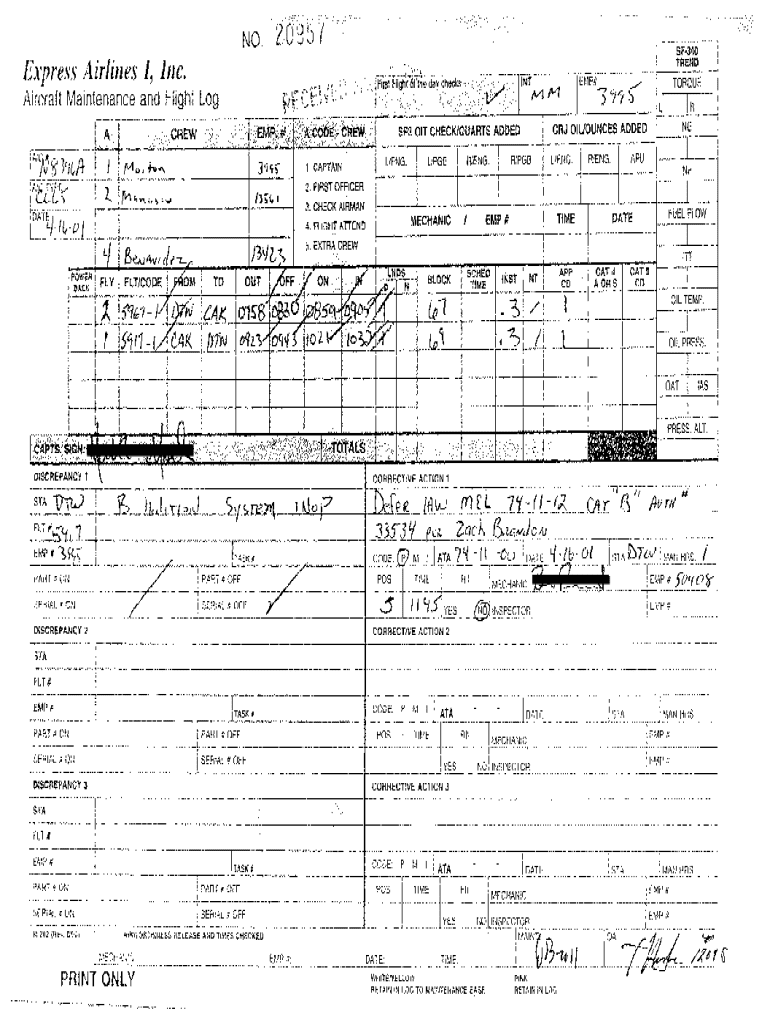 NO. 20957
Express Airlines I, Inc.
Aircraft Maintenance and Flight Log
RECEIVED
First Flight of the day checks
INT MM
EMP# 3995
SF-340 TREND
TORQUE
L R
A CREW EMP. # A CODE - CREW
1 Morton 3995
2 13561
4 Benavidez 13423
1. CAPTAIN
2. FIRST OFFICER
3. CHECK AIRMAN
4. FLIGHT ATTEND
5. EXTRA CREW
DATE 4-16-01
OIT CHECK/QUARTS ADDED
CRJ OIL/OUNCES ADDED
L/ENG. L/PGB R/ENG. R/PGB L/ENG. R/ENG. APU
MECHANIC / EMP # TIME DATE
FUEL FLOW
ITT
OIL TEMP.
OIL PRESS.
OAT IAS
PRESS. ALT.
POWER BACK FLY FLT/CODE FROM TO OUT OFF ON IN LNDS D N BLOCK SCHED TIME INST NT APP CD
2 5967-1 DTW CAK 0758 0830 0859 0905 1 67 .3 / 1
1 5917-1 CAK DTW 0923 0943 1021 1032 1 69 .3 / 1
CAPTS. SIGN. TOTALS
DISCREPANCY 1
STA DTW B Ignition System inop
FLT #
EMP #
TASK #
PART # ON PART # OFF
SERIAL # ON SERIAL # OFF
CORRECTIVE ACTION 1
Defer IAW MEL 74-11-12 CAT "B" Auth #
33534 per Zach Brandon
CODE: P M I ATA 74-11-00 DATE 4-16-01 STA DTW MAN HRS. 1
POS TIME FIT MECHANIC EMP # 50408
5 1145 YES NO INSPECTOR EMP #
DISCREPANCY 2
STA
FLT #
EMP # TASK #
PART # ON PART # OFF
SERIAL # ON SERIAL # OFF
CORRECTIVE ACTION 2
CODE: P M I ATA - - DATE STA MAN HRS
POS TIME FIT MECHANIC EMP #
YES NO INSPECTOR EMP #
DISCREPANCY 3
STA
FLT #
EMP # TASK #
PART # ON PART # OFF
SERIAL # ON SERIAL # OFF
CORRECTIVE ACTION 3
CODE: P M I ATA - - DATE STA MAN HRS
POS TIME FIT MECHANIC EMP #
YES NO INSPECTOR EMP #
AIRWORTHINESS RELEASE AND TIMES CHECKED
MECHANIC EMP #: DATE: TIME:
QA
PRINT ONLY
WHITE/YELLOW
RETAIN IN LOG TO MAINTENANCE BASE
PINK
RETAIN IN LOG